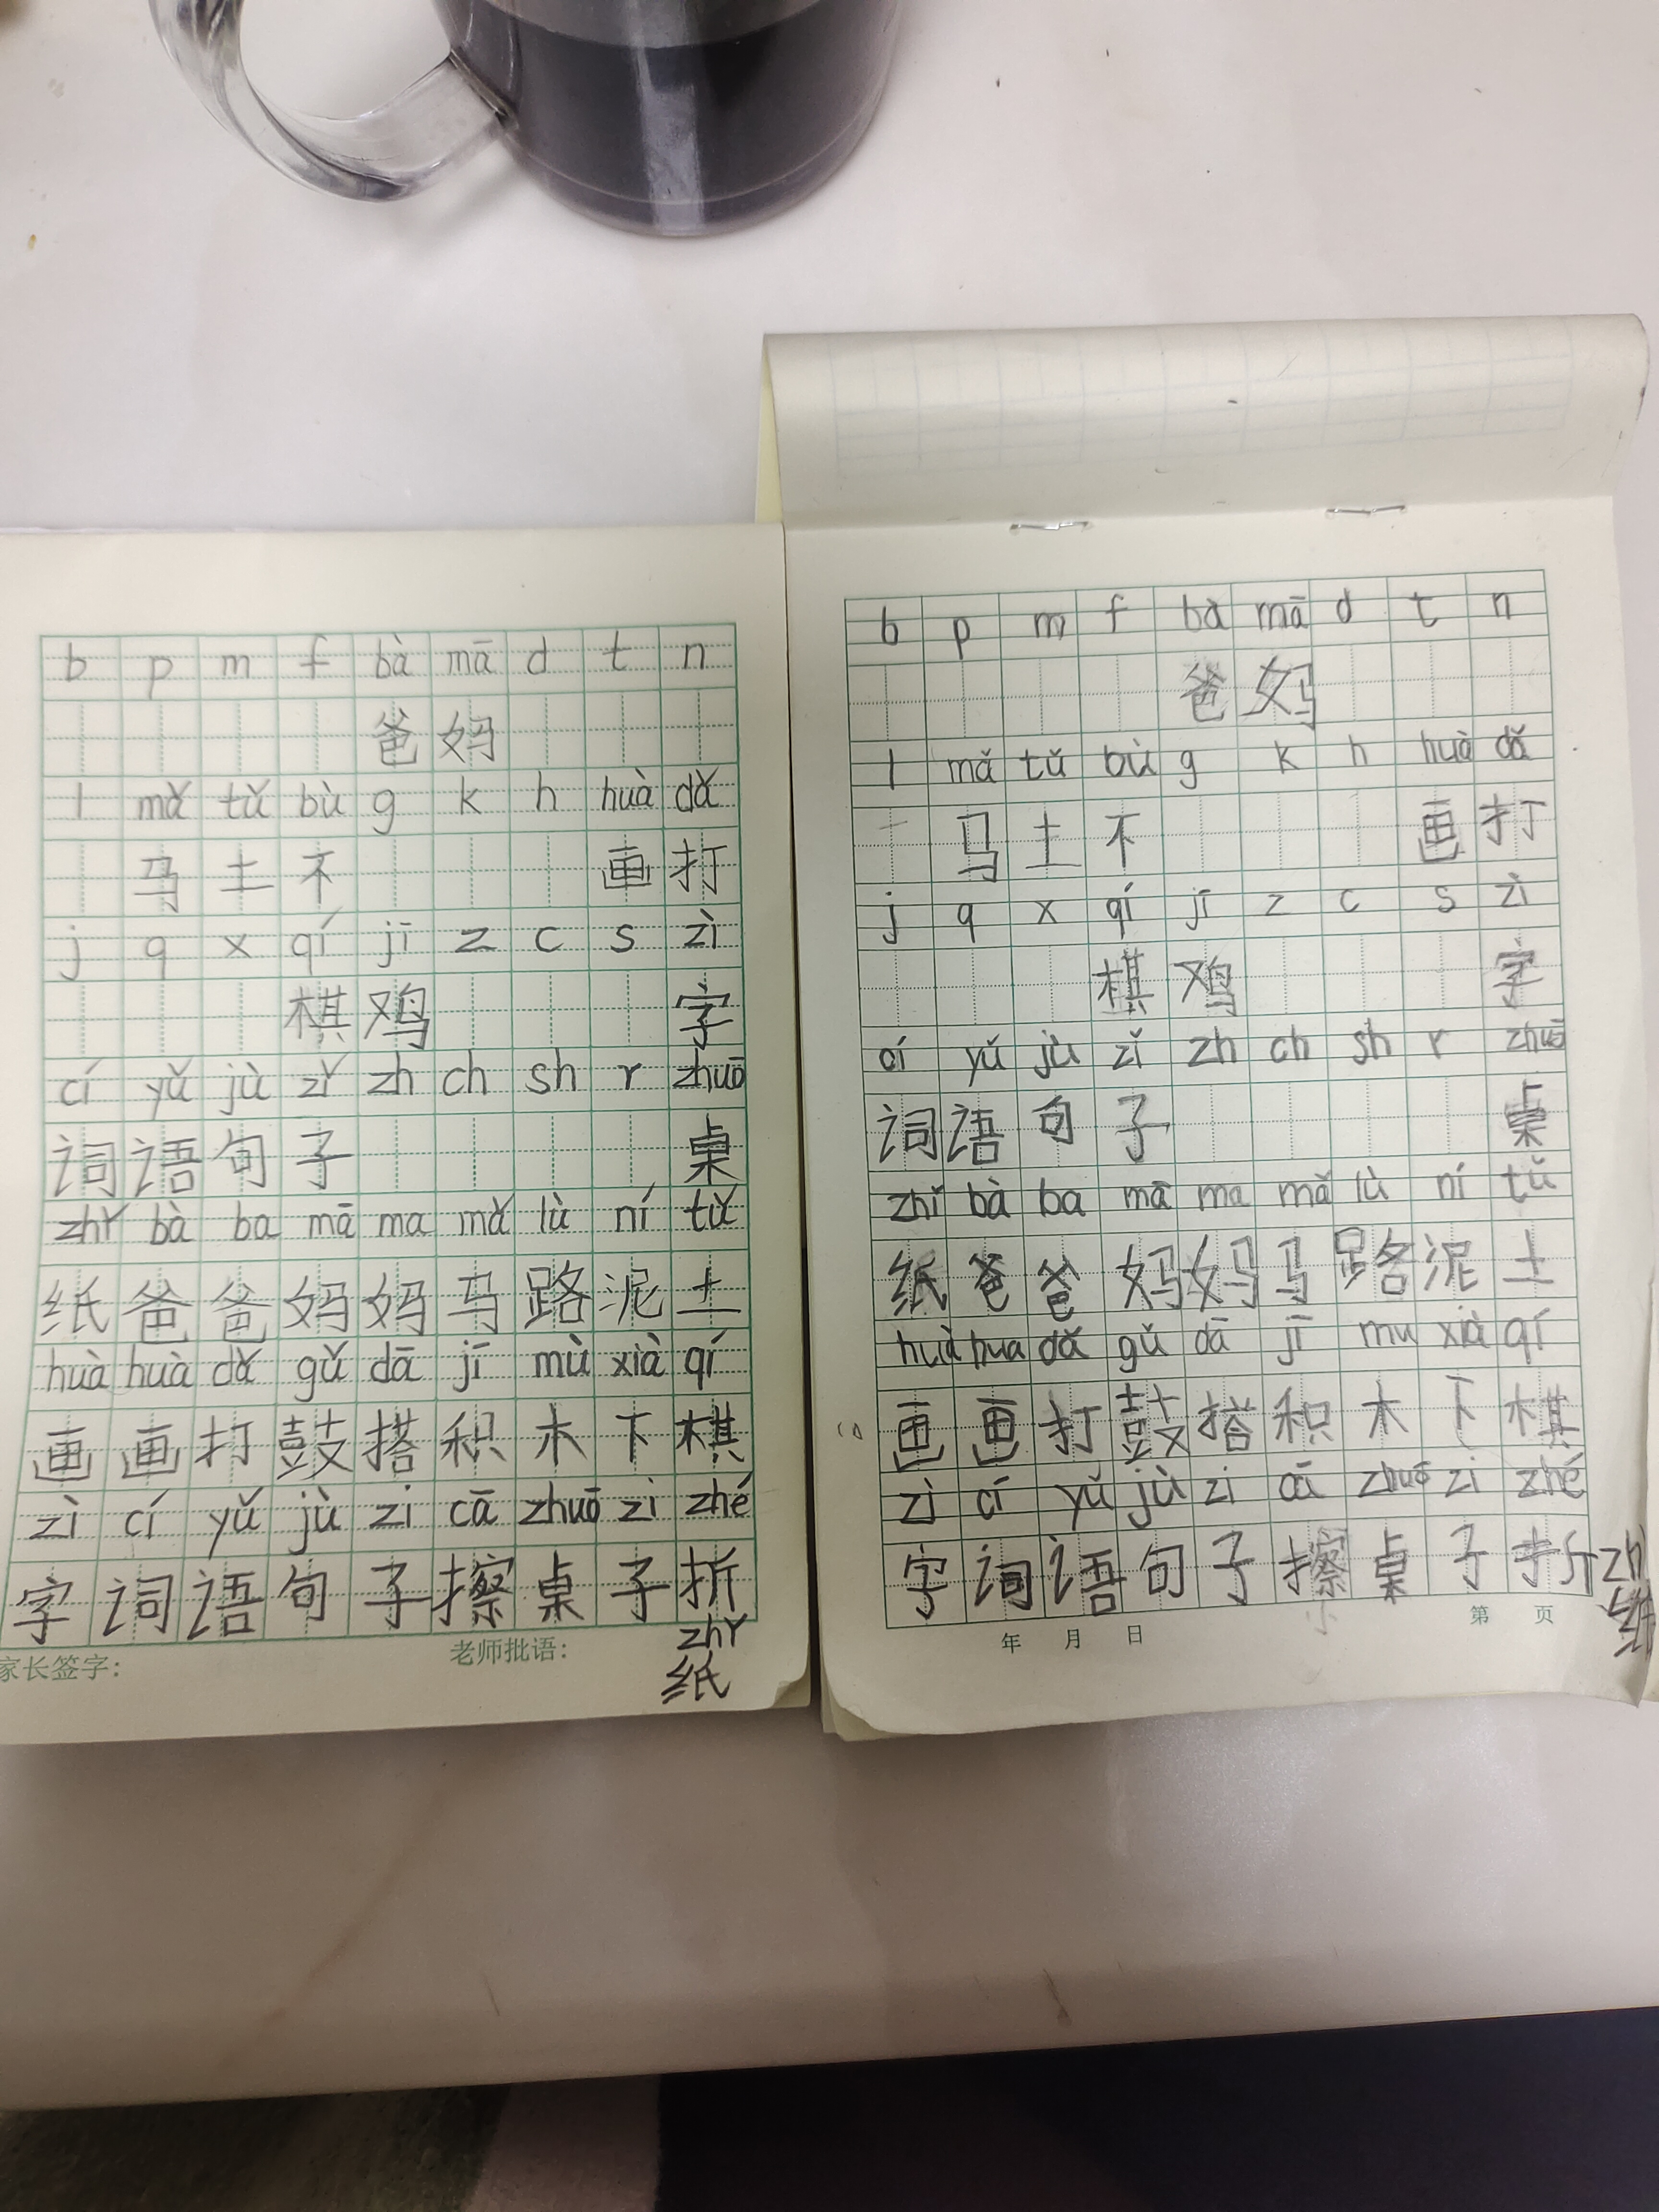 b p m f bà mā d t n
爸 妈
l mǎ tǔ bù g k h huà dǎ
马 土 不 画 打
j q x qí jī z c s zì
棋 鸡 字
cí yǔ jù zǐ zh ch sh r zhuō
词 语 句 子 桌
zhǐ bà ba mā ma mǎ lù ní tǔ
纸 爸 爸 妈 妈 马 路 泥 土
huà huà dǎ gǔ dā jī mù xià qí
画 画 打 鼓 搭 积 木 下 棋
zì cí yǔ jù zi cā zhuō zi zhé
字 词 语 句 子 擦 桌 子 折
zhǐ
纸
家长签字: 老师批语:
b p m f bà mā d t n
爸 妈
l mǎ tǔ bù g k h huà dǎ
马 土 不 画 打
j q x qí jī z c s zì
棋 鸡 字
cí yǔ jù zǐ zh ch sh r zhuō
词 语 句 子 桌
zhǐ bà ba mā ma mǎ lù ní tǔ
纸 爸 爸 妈 妈 马 路 泥 土
huà hua dǎ gǔ dā jī mu xià qí
画 画 打 鼓 搭 积 木 下 棋
zì cí yǔ jù zi cā zhuō zi zhé
字 词 语 句 子 擦 桌 子 折
纸
年 月 日 第 页